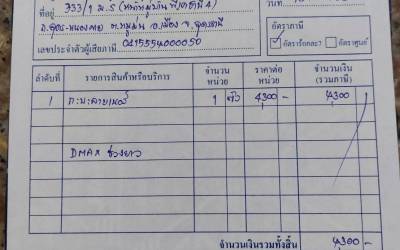 ที่อยู่ 333/1 ม.5 อัตราภาษี
ถ.อุดร-หนองคาย อ.เมือง จ.อุดรธานี อัตราร้อยละ7 อัตราศูนย์
เลขประจำตัวผู้เสียภาษี 0415554000050
ลำดับที่ รายการสินค้าหรือบริการ จำนวนหน่วย ราคาต่อหน่วย จำนวนเงิน (รวมภาษี)
1 1 ตัว 4300 - 4300
DMAX ช่วงยาว
จำนวนเงินรวมทั้งสิ้น 4300 -